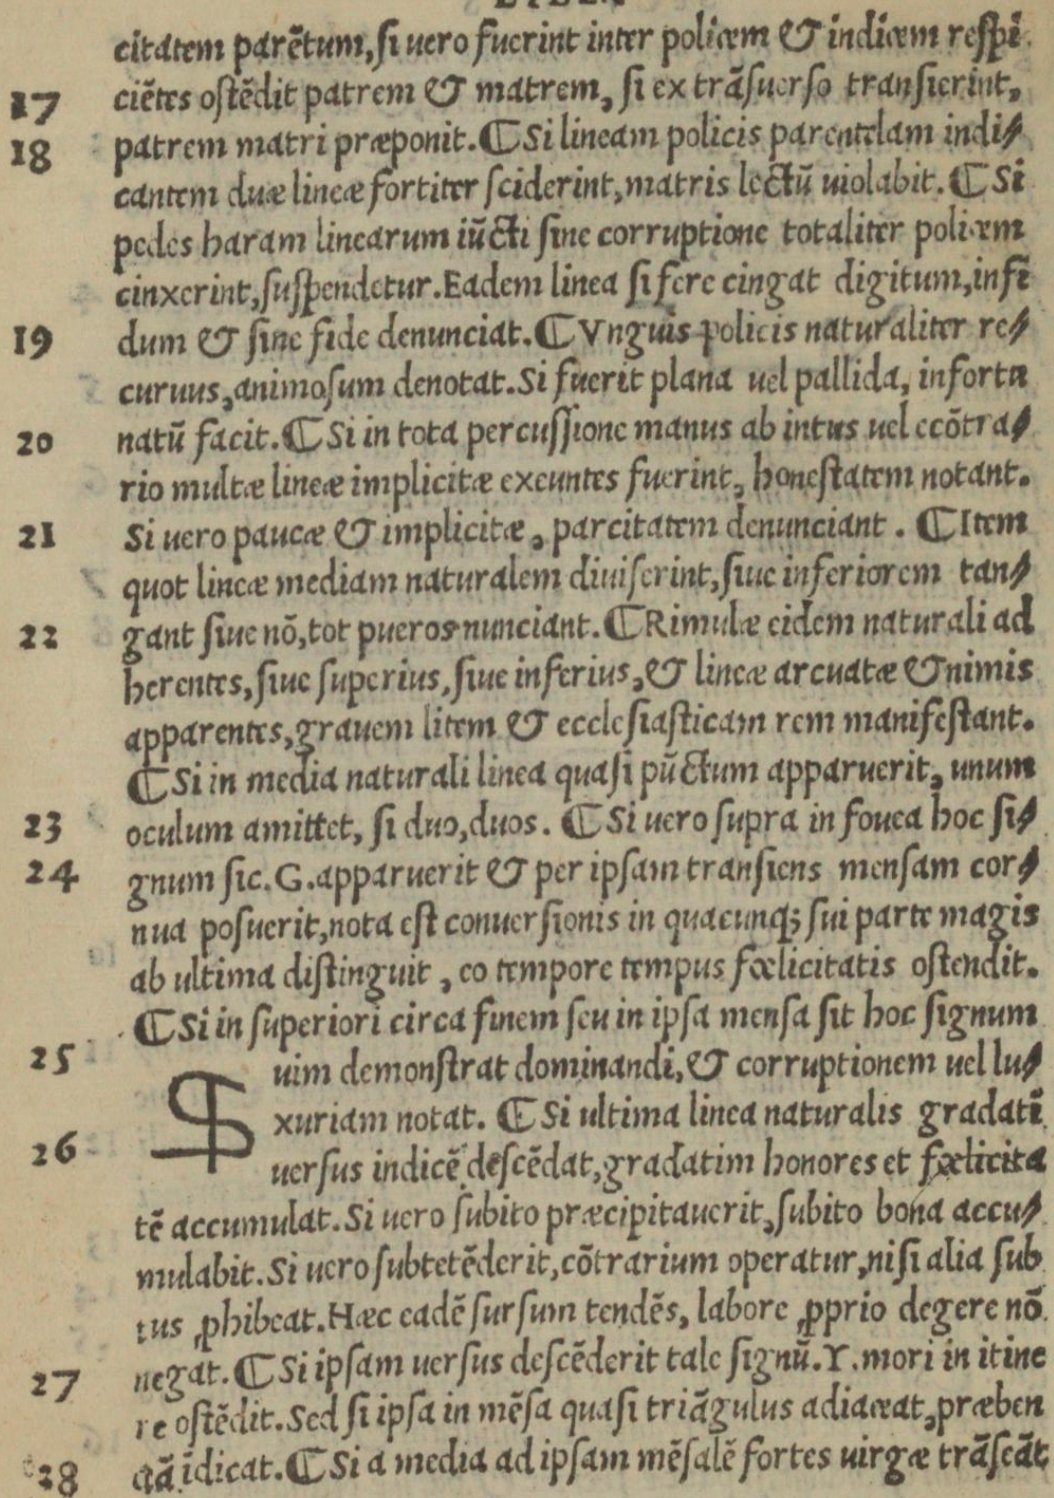 citatem parẽtum, ſi uero fuerint inter policem & indicem reſpi
17 ciẽtes oſtẽdit patrem & matrem, ſi ex trãſuerſo tranſierint,
18 patrem matri præponit. ¶ Si lineam policis parentelam indi⸗
cantem duæ lineæ fortiter ſciderint, matris lectũ uiolabit. ¶ Si
pedes haram linearum iũcti ſine corruptione totaliter policem
cinxerint, ſuſpendetur. Eadem linea ſi fere cingat digitum, infĩ
19 dum & ſine fide denunciat. ¶ Vnguis policis naturaliter re⸗
curuus, animoſum denotat. Si fuerit plana uel pallida, infortu
20 natũ facit. ¶ Si in tota percuſſione manus ab intus uel ecõtra⸗
rio multæ lineæ implicitæ exeuntes fuerint, honeſtatem notant.
21 Si uero paucæ & implicitæ, parcitatem denunciant. ¶ Item
quot lineæ mediam naturalem diuiſerint, ſiue inferiorem tan⸗
22 gant ſiue nõ, tot pueros nunciant. ¶ Rimulæ eidem naturali ad
herentes, ſiue ſuperius, ſiue inferius, & lineæ arcuatæ & nimis
apparentes, grauem litem & eccleſiaſticam rem manifeſtant.
¶ Si in media naturali linea quaſi pũctum apparuerit, unum
23 oculum amittet, ſi duo, duos. ¶ Si uero ſupra in fouea hoc ſi⸗
24 gnum ſic. G. apparuerit & per ipſam tranſiens menſam cor⸗
nua poſuerit, nota eſt conuerſionis in quacunq; ſui parte magis
ab ultima diſtinguit, eo tempore tempus fœlicitatis oſtendit.
¶ Si in ſuperiori circa finem ſeu in ipſa menſa ſit hoc ſignum
25 uim demonſtrat dominandi, & corruptionem uel lu⸗
xuriam notat. ¶ Si ultima linea naturalis gradatĩ
26 uerſus indicẽ deſcẽdat, gradatim honores et fœlicita
tẽ accumulat. Si uero ſubito præcipitauerit, ſubito bona accu⸗
mulabit. Si uero ſubtetẽderit, cõtrarium operatur, niſi alia ſub
tus ꝓhibeat. Hæc eadẽ ſurſum tendẽs, labore ꝓprio degere nõ
negat. ¶ Si ipſam uerſus deſcẽderit tale ſignũ. Y. mori in itine
27 re oſtẽdit. Sed ſi ipſa in mẽſa quaſi triãgulus adiaceat, præben
28 dã ĩdicat. ¶ Si a media ad ipſam mẽſalẽ fortes uirgæ trãſeãt